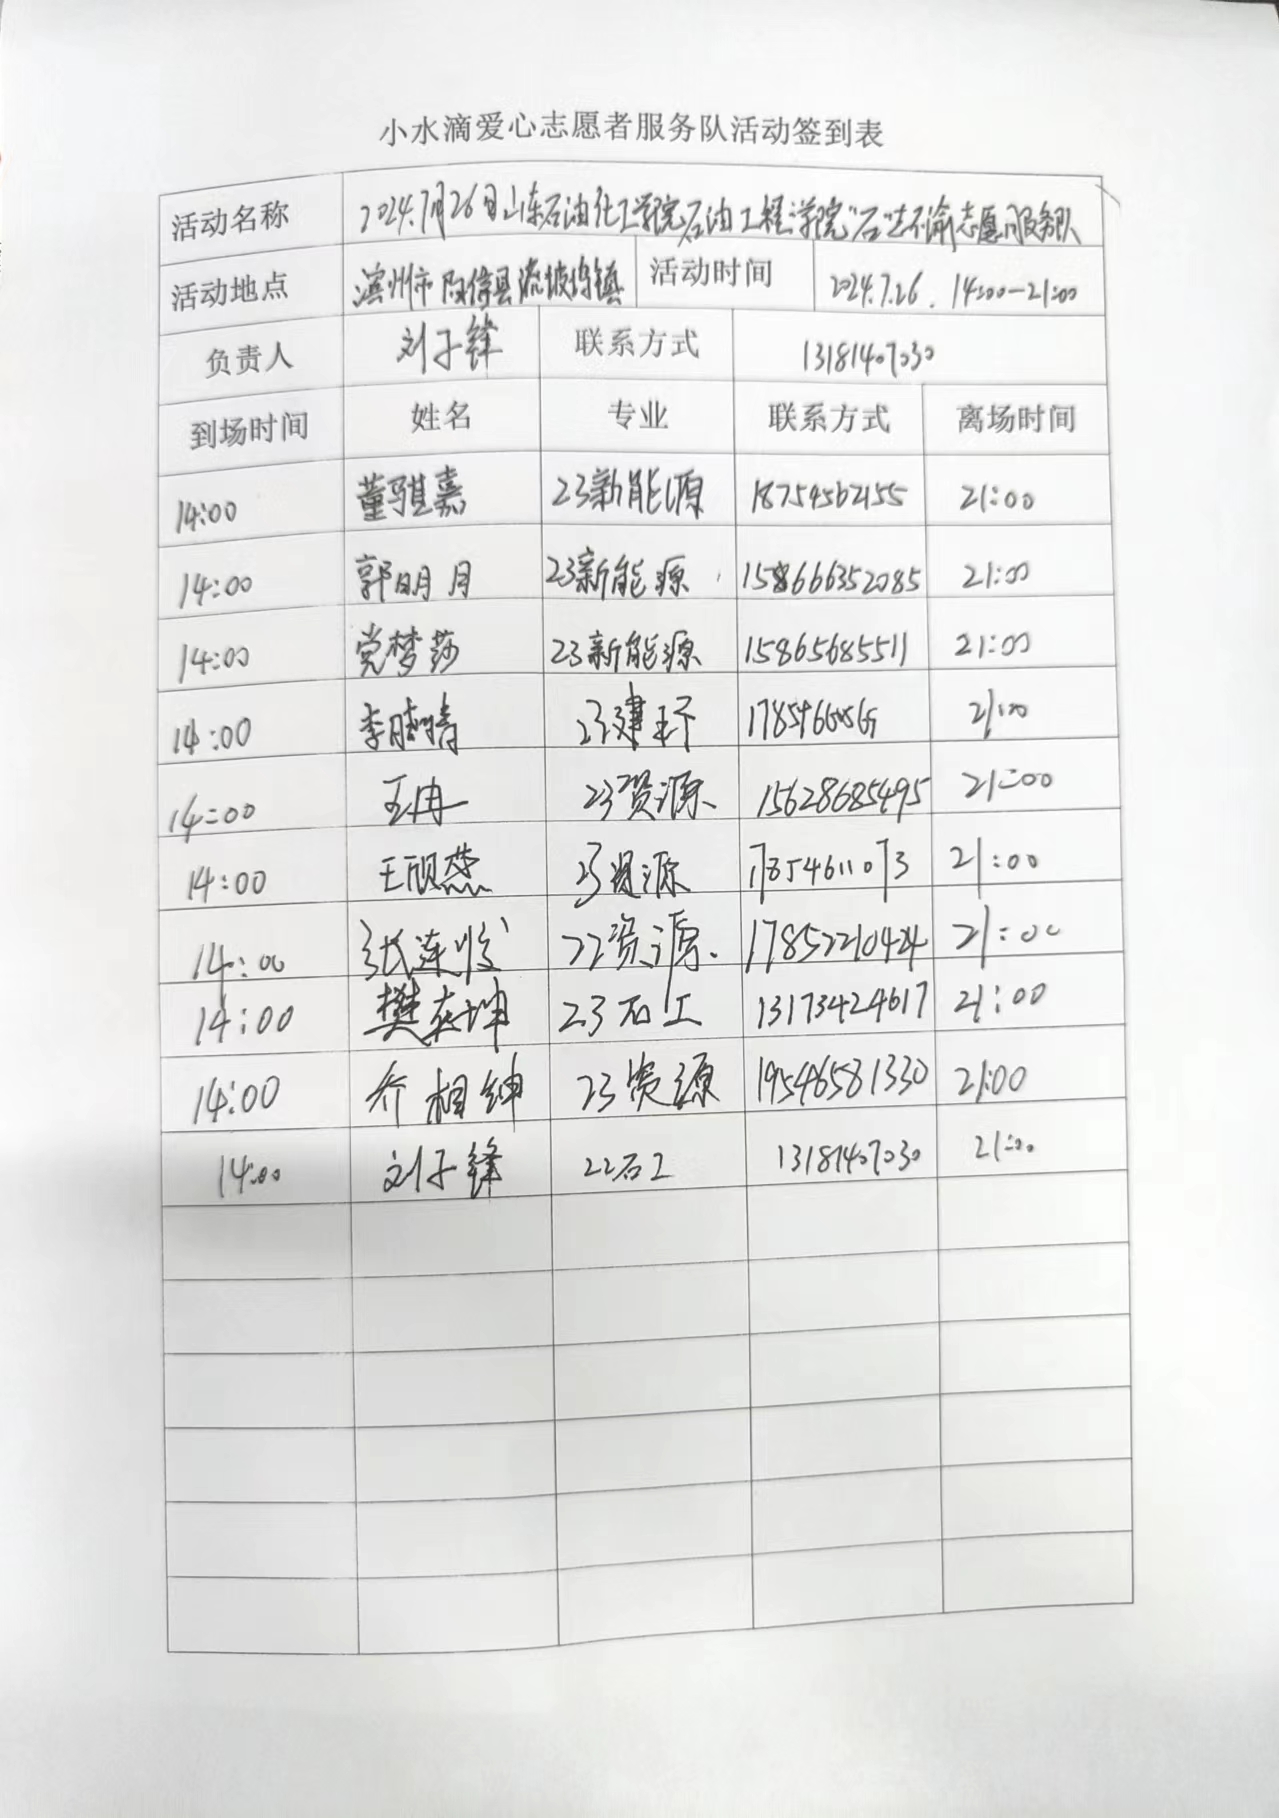 小水滴爱心志愿者服务队活动签到表
活动名称 2024.7月26日山东石油化工学院石油工程学院"石"述不渝志愿服务队
活动地点 滨州市阳信县流坡坞镇 活动时间 2024.7.26. 14:00-21:00
负责人 刘子锋 联系方式 13181407030
到场时间 姓名 专业 联系方式 离场时间
14:00 董骐嘉 23新能源 18754562155 21:00
14:00 郭明月 23新能源 158666352085 21:00
14:00 党梦莎 23新能源 15865685511 21:00
14:00 23建环 21:00
14:00 王冉 23资源 15628685495 21:00
14:00 23资源 17854611073 21:00
14:00 22资源 17852210424 21:00
14:00 23石工 13173424617 21:00
14:00 乔相绅 23资源 19546581330 21:00
14:00 刘子锋 22石工 13181407030 21:00